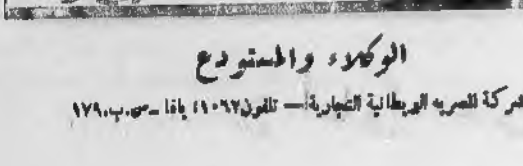 الوكلاء والمستودع
شركة المصريه البريطانية التجارية — تلفون ٤١٠٦٧ يافا ـ ص.ب. ٩٧٩